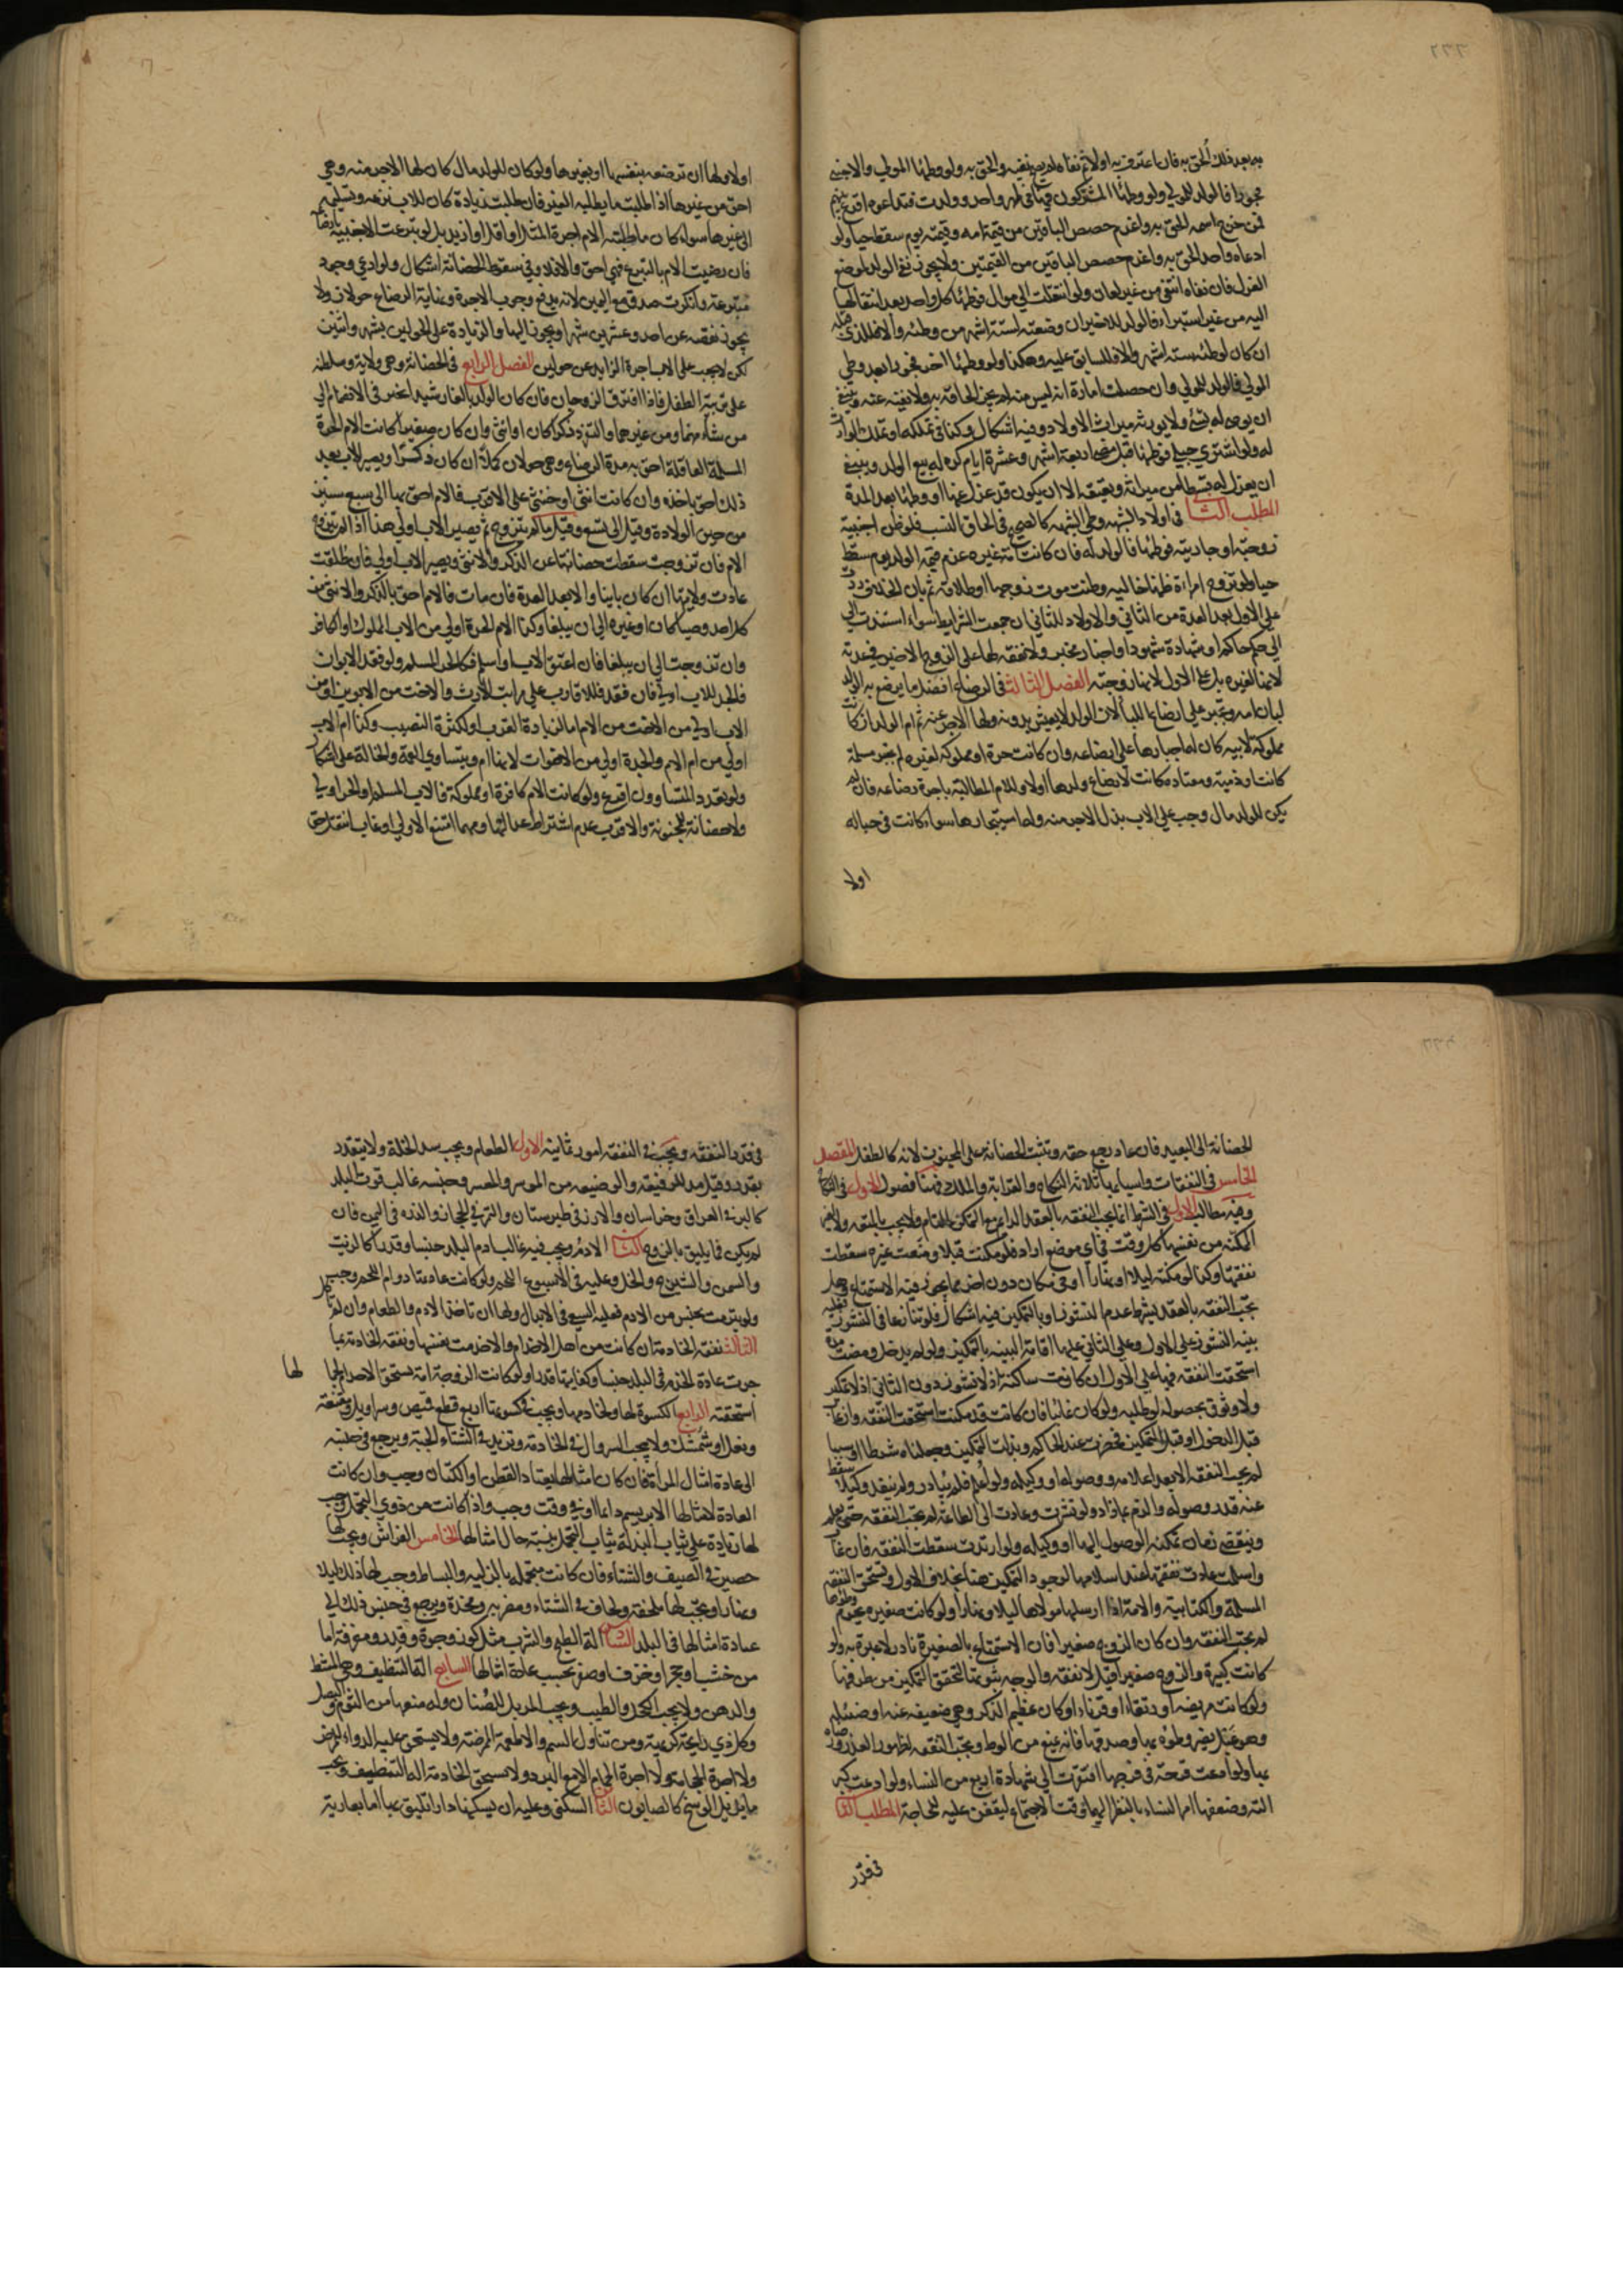 به بعد ذلك ألحق به فان اعترف به اولا ثم نفاه لم يصح نفيه والحق به ولو وطئها المولى والاجنبي
فجورا فالولد للمولى ولو وطئها المشتركون فيها في طهر واحد وولدت فتداعوه اقرع بينهم
فمن خرج اسمه الحق به واغرم حصص الباقين من قيمة امه وقيمته يوم سقط حيا ولو
ادعاه واحد الحق به واغرم حصص الباقين من القيمتين ولا يجوز نفي الولد لموضع
العزل فان نفاه انتفى من غير لعان ولو انتقلت الى موال فوطئها كل واحد بعد انتقالها
اليه من غير استبراء فالولد للاخير ان وضعته لستة اشهر من وطئه والا فللذي قبله
ان كان لوطئه ستة اشهر والا فللسابق عليه وهكذا ولو وطئها اخر فجورا بعد وطي
المولى فالولد للمولى وان حصلت امارة انه ليس منه لم يجز الحاقه به ولا نفيه عنه وينبغي
ان يوصي له بشئ ولا يورثه ميراث الاولاد وفيه اشكال وكذا في تملكه او تملك الوارث
له ولو اشترى حبلى فوطئها قبل مضي اربعة اشهر وعشرة ايام كره له بيع الولد وينبغي
ان يعزل له قسطا من ميراثه ويعتقه الا ان يكون قد عزل عنها او وطئها بعد المدة
المطلب الثالث في اولاد الشبهة وطي الشبهة كالصحيح في الحاق النسب فلو ظن اجنبية
زوجته او جاريته فوطئها فالولد له فان كانت امة غيره غرم قيمة الولد يوم سقط
حيا ولو تزوج امراءة ظنها خالية وظنت موت زوجها او طلاقه ثم بان الخلاف ردت
على الاول بعد العدة من الثاني والاولاد للثاني ان جمعت الشرايط سواء استندت الى
الى حكم حاكم او شهادة شهود او اخبار مخبر ولا نفقة لها على الزوج الاخير في عدته
لانها لغيره بل على الاول لانها زوجته الفصل الثالث في الرضاع افضل ما يرضع به الولد
لبان امه وتجبر على ارضاع اللباء لان الولد لا يعيش بدونه ولها الاجر عنه ثم ام الولد ان كانت
مملوكة لابيه كان له اجبارها على ارضاعه وان كانت حرة او مملوكة لغيره لم تجبر مسلمة
كانت او ذمية ومعتادة كانت لارضاع ولدها اولا وللام المطالبة باجرة رضاعه فان لم
يكن للولد مال وجب على الاب بذل الاجر منه وله استيجارها سواء كانت في حباله
اولا
اولا ولها ان ترضعه بنفسها او بغيرها ولو كان للولد مال كان لها الاجر منه وهي
احق من غيرها اذا طلبت ما يطلبه الغير فان طلبت زيادة كان للاب نزعه وتسليمه
الى غيرها سواء كان ما طلبته الام اجرة المثل او اقل او ازيد بل لو تبرعت الاجنبية بارضاعه
فان رضيت الام بالتبرع فهي احق والا فلا وفي سقوط الحضانة اشكال ولو ادعى وجود
متبرعة وانكرت صدق مع اليمين لانه يدفع وجوب الاجرة ونهاية الرضاع حولان ولا
يجوز نقصه عن احد وعشرين شهرا ويجوز اليها والزيادة على الحولين بشهر واثنين
لكن لا يجب على الاب اجرة الزايد عن حولين الفصل الرابع في الحضانة وهي ولاية وسلطنة
على تربية الطفل فاذا افترق الزوجان فان كان الولد بالغا رشيدا تخير في الانضمام الى
من شاء منهما ومن غيرهما والتفرد ذكرا كان او انثى وان كان صغيرا كانت الام الحرة
المسلمة العاقلة احق به مدة الرضاع وهي حولان كملا ان كان ذكرا ويصير الاب بعد
ذلك احق باخذه وان كانت انثى او خنثى على الاقرب فالام احق بها الى سبع سنين
من حين الولادة وقيل الى تسع وقيل ما لم يتزوج ثم يصير الاب اولى هذا اذا لم يتزوج
الام فان تزوجت سقطت حضانتها عن الذكر والانثى ويصير الاب اولى فان طلقت
عادت ولايتها ان كان باينا والا بعد العدة فان مات فالام احق بالذكر والانثى من
كل احد وصيا كان او غيره الى ان يبلغا وكذا الام الحرة اولى من الاب المملوك او الكافر
وان تزوجت الى ان يبلغا فان اعتق الاب او اسلم فكالحر المسلم ولو فقد الابوان
فالجد للاب اولى فان فقد فللاقارب على مراتب الارث والاخت من الابوين او من
الاب اولى من الاخت من الام اما لزيادة القرب او لكثرة النصيب وكذا ام الاب
اولى من ام الام والجدة اولى من الاخوات لانها ام ويتساوى العمة والخالة على اشكال
ولو تعدد المتساوون اقرع ولو كانت الام كافرة او مملوكة فالاب المسلم او الحر اولى
ولا حضانة للمجنونة والاقرب عدم اشتراط عدالتها ومهما امتنع الاولى او غاب انتقل حق
الحضانة الى البعيد فان عاد رجع حقه وتثبت الحضانة على المجنون لانه كالطفل المقصد
الخامس في النفقات واسبابها ثلاثة النكاح والقرابة والملك فهنا فصول الاول في النكاح
وفيه مطالب الاول في الشرط انما تجب النفقة بالعقد الدائم مع التمكين التام ولا يجب بالمتعة ولا لغير
الممكنة من نفسها كل وقت في اي موضع اراد فلو مكنت قبلا ومنعت غيره سقطت
نفقتها وكذا لو مكنته ليلا او نهارا او في مكان دون اخر مما يجوز فيه الاستمتاع وهل
تجب النفقة بالعقد بشرط عدم النشوز او بالتمكين فيه اشكال فلو تنازعا في النشوز فعليه
بينة النشوز على الاول وعلى الثاني عليها اقامة البينة بالتمكين ولو لم يدخل ومضت مدة
استحقت النفقة فيها على الاول ان كانت ساكتة اذ لا نشوز دون الثاني اذ لا تمكين
ولا وثوق بحصوله لو طلبه ولو كان غائبا فان كانت قد مكنت استحقت النفقة وان غاب
قبل الدخول او قبل التمكين فحضرت عند الحاكم وبذلت التمكين وجعلناه شرطا او سببا
لم يجب النفقة الا بعد اعلامه ووصوله او وكيله ولو اعلم فلم يبادر ولم ينفذ وكيلا سقط
عنه قدر وصوله والزم بما زاد ولو نشزت وعادت الى الطاعة لم تجب النفقة حتى يعلم
وينقضي زمان تمكنه الوصول اليها او وكيله ولو ارتدت سقطت النفقة فان غاب
واسلمت عادت نفقتها عند اسلامها لوجود التمكين هنا بخلاف الاول وتستحق النفقة
المسلمة والكتابية والامة اذا ارسلها مولاها ليلا ونهارا ولو كانت صغيرة يحرم وطؤها
لم تجب النفقة وان كان الزوج صغيرا فان الاستمتاع بالصغيرة نادر لا عبرة به ولو
كانت كبيرة والزوج صغيرا قيل لا نفقة والوجه ثبوتها لتحقق التمكين من طرفها
ولو كانت مريضة او رتقاء او قرناء او كان عظيم الذكر وهي ضعيفة عنه او ضئيلة
وهو عبل يضر وطؤه بها وصدقها فانه يمنع من الوطي وتجب النفقة لظهور العذر ورضاه
بها ولو ادعت قرحة في فرجها افتقرت الى شهادة اربع من النساء ولو ادعت كبر
الته وضعفها امر النساء بالنظر اليهما وقت الاجتماع ليقفن عليه للحاجة المطلب الثاني
في قدر
في قدر النفقة ويجب في النفقة امور ثمانية الاول الطعام ويجب سد الخلة ولا يتقدر
بقدر وقيل مد للرفيعة والوضيعة من الموسر والمعسر وجنسه غالب قوت البلد
كالبر في العراق وخراسان والارز في طبرستان والتمر في الحجاز والذرة في اليمن فان
لم يكن فما يليق بالزوج الثاني الادم ويجب فيه غالب ادم البلد جنسا وقدرا كالزيت
والسمن والشيرج والخل وعليه في الاسبوع اللحم ولو كانت عادتها دوام اللحم وجب
ولو تبرمت بجنس من الادم فعليه السعي في الابدال ولها ان تاخذ الادم والطعام وان لم تأكل
الثالث نفقة الخادمة ان كانت من اهل الاخدام والا خدمت نفسها ونفقة الخادمة بما
جرت عادة الخدم في البلد جنسا وكفايتها قدرا ولو كانت الزوجة امة تستحق الاخدام لجمالها
استحقته الرابع الكسوة لها ولخادمها ويجب في كسوتها اربع قطع قميص وسراويل ومقنعة
ونعل او شمشك ولا يجب السروال في الخادمة وتزيد في الشتاء الجبة ويرجع في جنسه
الى عادة امثال المرأة فان كان امثالها يعتاد القطن او الكتان وجب وان كانت
العادة لامثالها الابريسم دائما او في وقت وجب واذا كانت من ذوي التجمل وجب
لها زيادة على ثياب البذلة ثياب التجمل بنسبة حال امثالها الخامس الفراش ويجب لها
حصير في الصيف والشتاء فان كانت متجملة بالزلية والبساط وجب لها ذلك ليلا
ونهارا وتجب لها ملحفة ولحاف في الشتاء ومضربة ومخدة ويرجع في جنس ذلك الى
عادة امثالها في البلد السادس الة الطبخ والشرب مثل كوز وجرة وقدر ومغرفة اما
من خشب او حجر او خزف او صفر بحسب عادة امثالها السابع الة التنظيف وهي المشط
والدهن ولا يجب الكحل والطيب ويجب المزيل للصنان وله منعها من الثوم والبصل
وكل ذي رائحة كريهة ومن تناول السم والاطعمة الممرضة ولا يستحق عليه الدواء للمرض
ولا اجرة الحجامة ولا اجرة الحمام الا مع البرد ولا تستحق الخادمة الة التنظيف ويجب
ما يزيل الوسخ كالصابون الثامن السكنى وعليه ان يسكنها دارا تليق بها اما بعارية